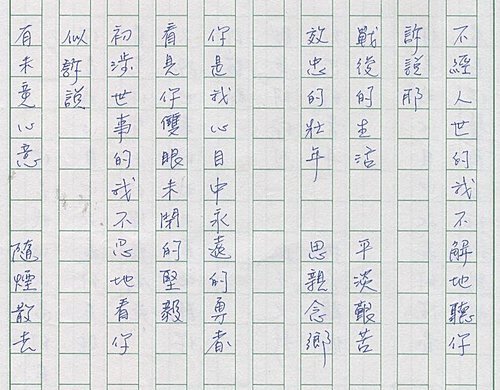 不經人世的我不解地聽你
訴說耶
戰後的生活 平淡艱苦
效忠的壯年 思親念鄉
你是我心目中永遠的勇者
看見你雙眼未閉的堅毅
初涉世事的我不忍地看你
似訴說
有未竟心意 隨煙散去